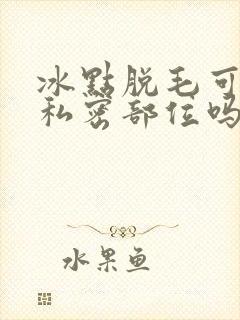 冰點脱毛可
私密部位吗
水果鱼